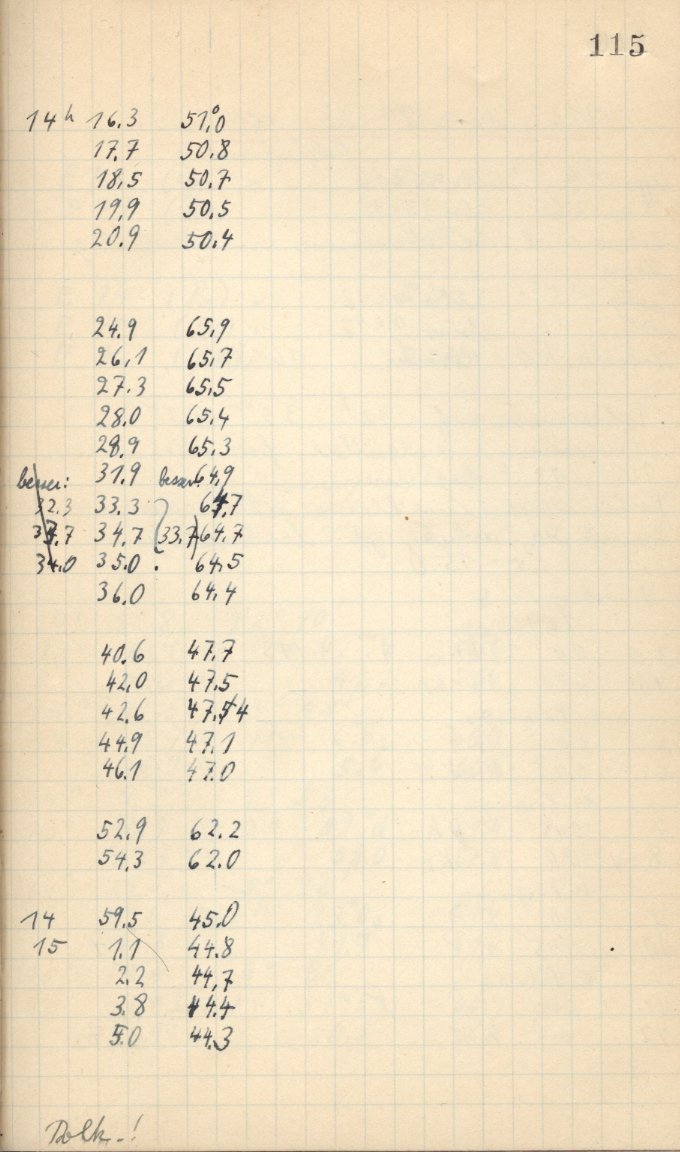 115
14 h 16.3 51°,0
17.7 50,8
18,5 50,7
19,9 50,5
20.9 50.4
24.9 65,9
26,1 65,7
27.3 65,5
28.0 65,4
28,9 65,3
besser: 31,9 besser: 64,9
32.3 33.3 64,7
33.7 34,7 33,7 64,7
34.0 35.0 64,5
36,0 64,4
40.6 47,7
42,0 47,5
42,6 47,54
44,9 47,1
46,1 47,0
52,9 62.2
54,3 62.0
14 59,5 45,0
15 1,1 44.8
2.2 44,7
3,8 44,4
5.0 44,3
Wolk.!